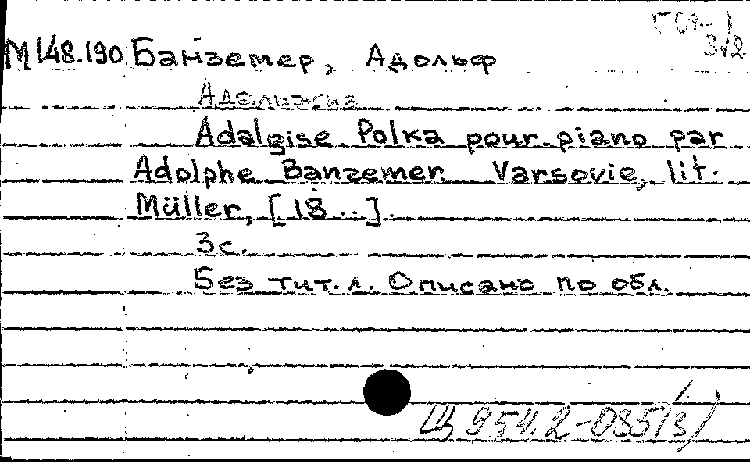 М148.190 Банземер, Адольф
Adalgise Polka pour piano par
Adolphe Banzemer. Varsovie, lit.
Müller, [18..]
3с.
Без тит. л. Описано по обл.
Щ 954.2-035/3/